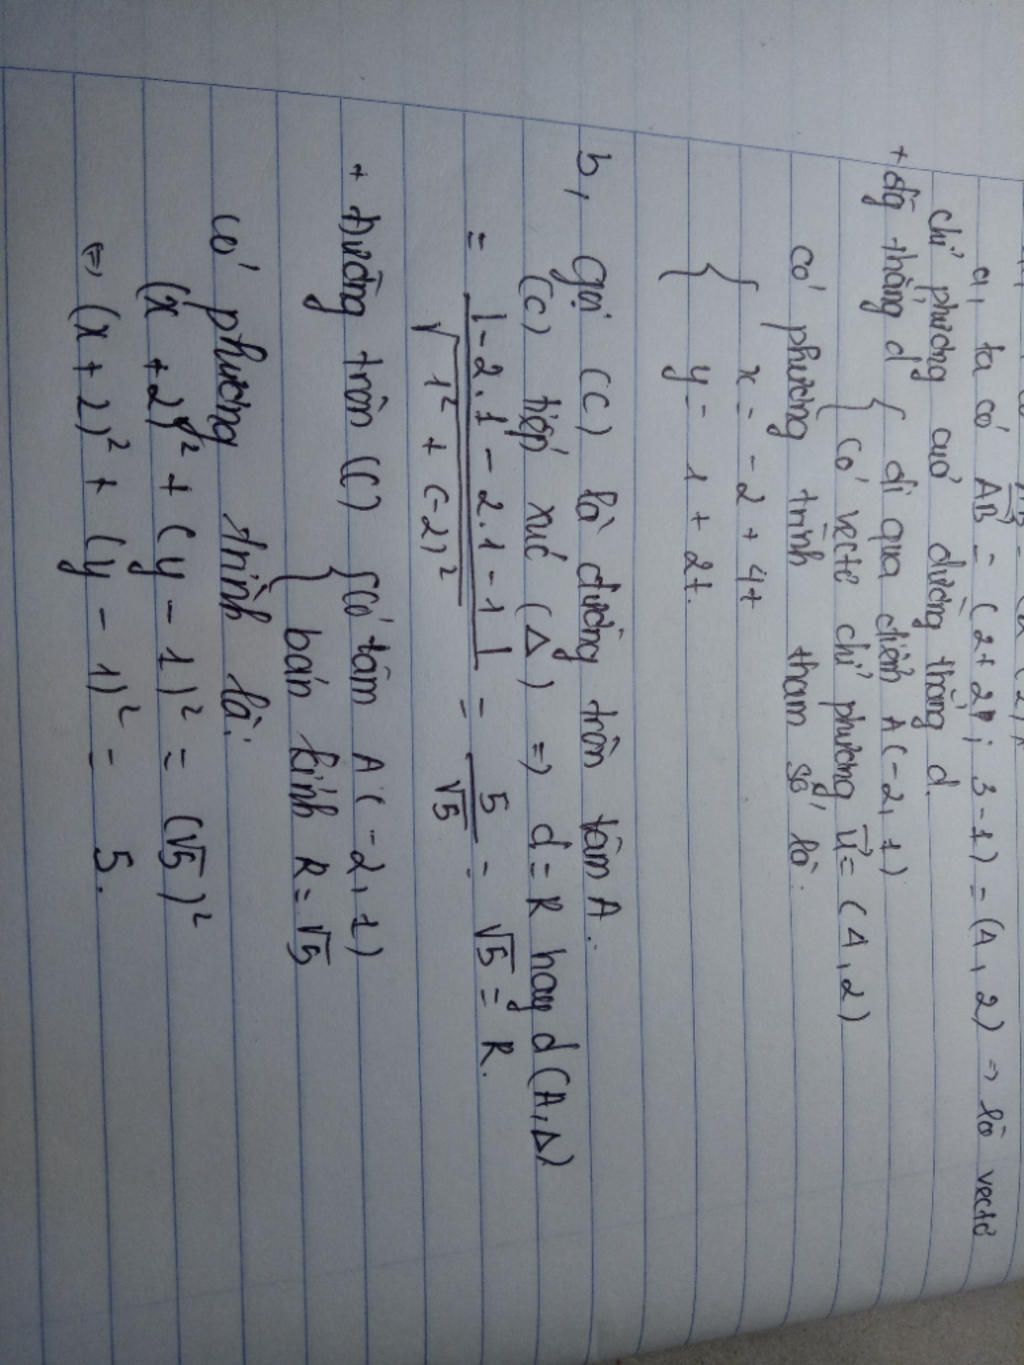 a, ta có AB = (2+2; 3-1) = (4, 2) => là vectơ
chỉ phương của đường thẳng d.
+ đg thẳng d { đi qua điểm A(-2, 1)
{ có vectơ chỉ phương u = (4, 2)
có phường trình tham số là:
{ x = -2 + 4t
y = 1 + 2t.
b, Gọi (C) là đường tròn tâm A.
(C) tiếp xúc (Δ) => d = R hay d(A,Δ)
= |-2.1 - 2.1 - 1| / √(1² + (-2)²) = 5/√5 = √5 = R.
+ Đường tròn (C) { có tâm A(-2, 1)
{ bán kính R = √5
có phương trình là:
(x + 2)² + (y - 1)² = (√5)²
⇔ (x + 2)² + (y - 1)² = 5.